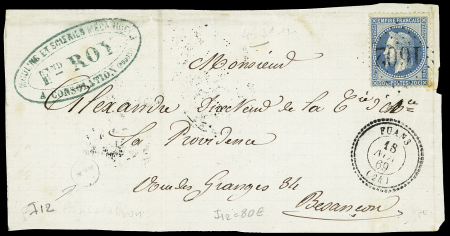 MOULINS ET SCIERIES MÉCANIQUES
FND ROY
A CONSOLATION (DOUBS)
EMPIRE FRANÇAIS
20c POSTES 20c
1662
Monsieur
Alexandre Directeur de la Cie d'
La Providence
Rue des Granges 84
Besançon
FUANS
18
69
(24)
J12
J12=80€